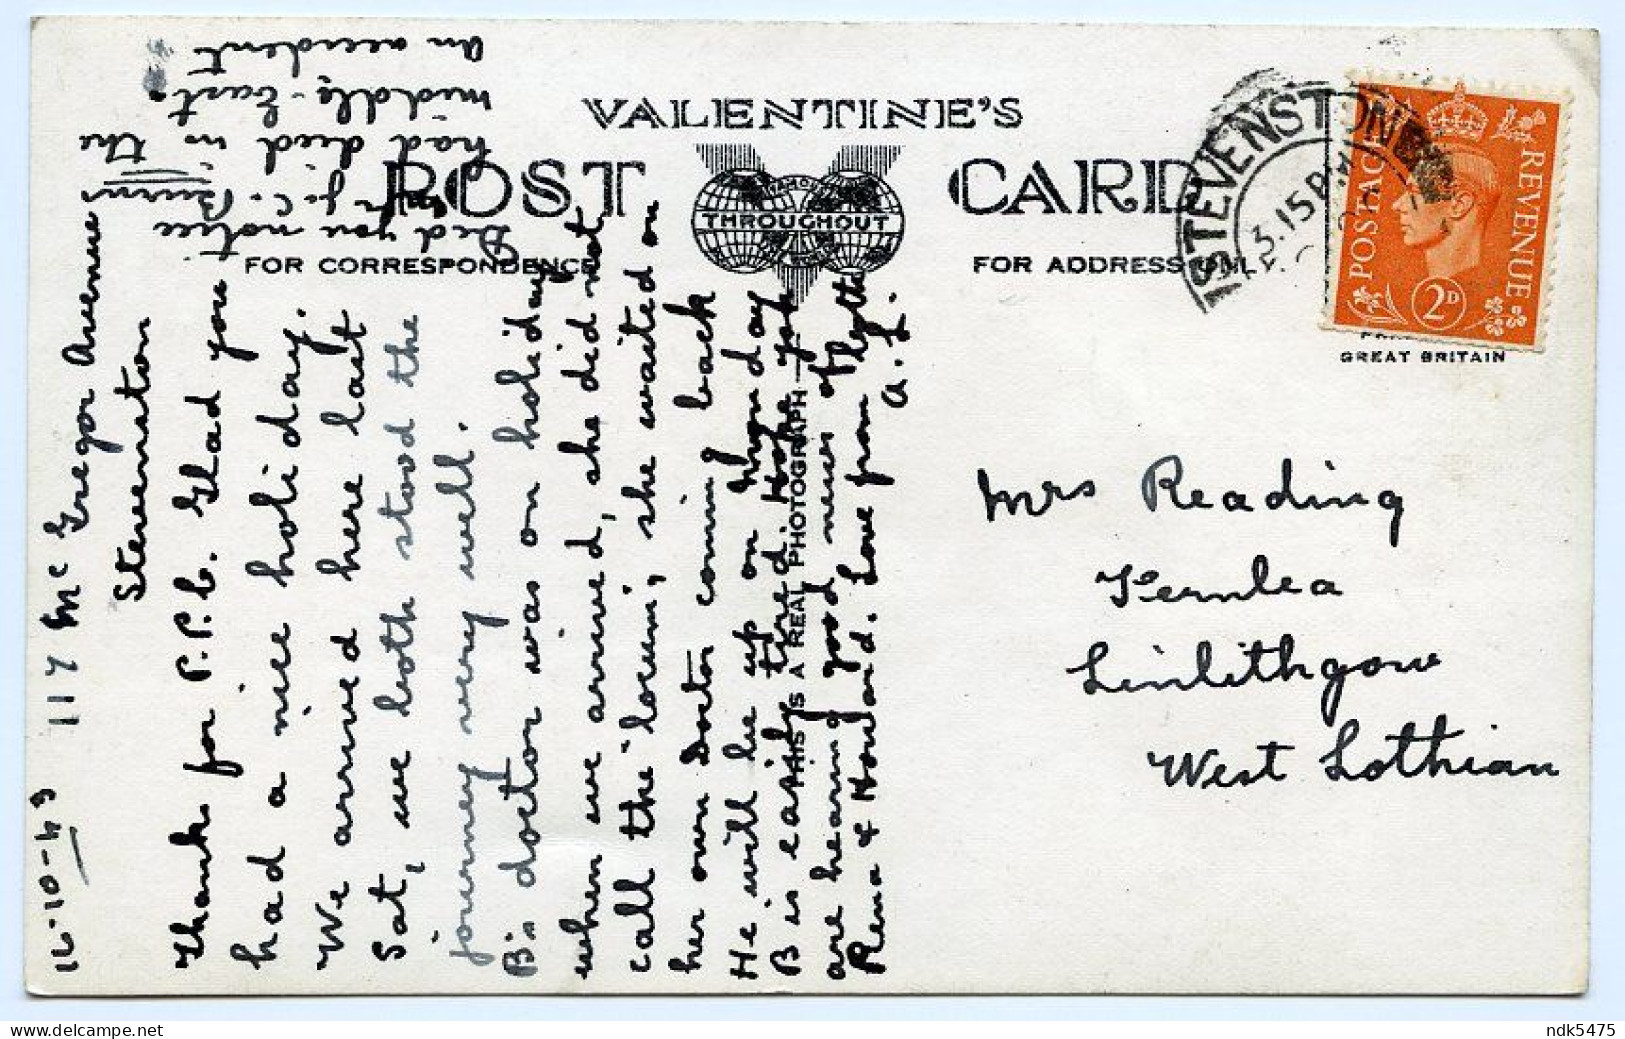 VALENTINE'S
POST CARD
THROUGHOUT
FOR CORRESPONDENCE
FOR ADDRESS ONL
STEVENSTON
3.15PM
POSTAGE
REVENUE
2D
GREAT BRITAIN
THIS IS A REAL PHOTOGRAPH
16-10-49
117 Mc Gregor Avenue
Stevenston
Thanks for P.P.C. Glad you
had a nice holiday.
We arrived here last
Sat, we both stood the
journey very well.
B's doctor was on holiday
when we arrived, she did not
call the locum, she waited on
her own Doctor coming back
He will be up on Monday
B is easily tired. Hope you
are hearing good news of
Rena & Howard. Love from
A. L.
Did you notice
J. C. Burns
had died in the
middle-East.
an accident
Mrs Reading
Fernlea
Linlithgow
West Lothian
ndk5475